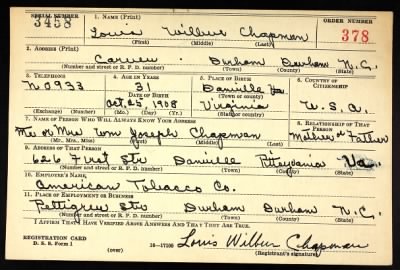 SERIAL NUMBER 1. NAME (Print) ORDER NUMBER
3458 Louis Wilbur Chapman 378
(First) (Middle) (Last)
2. ADDRESS (Print)
Durham Durham N.C.
(Number and street or R. F. D. number) (Town) (County) (State)
3. TELEPHONE 4. AGE IN YEARS 5. PLACE OF BIRTH 6. COUNTRY OF CITIZENSHIP
N 0933 31 Danville Va
DATE OF BIRTH (Town or county)
Oct. 25, 1908 Virginia U.S.A.
(Exchange) (Number) (Mo.) (Day) (Yr.) (State or country)
7. NAME OF PERSON WHO WILL ALWAYS KNOW YOUR ADDRESS 8. RELATIONSHIP OF THAT PERSON
Mr or Mrs Wm Joseph Chapman Mother or Father
(Mr., Mrs., Miss) (First) (Middle) (Last)
9. ADDRESS OF THAT PERSON
626 First Str Danville Pittsylvania Va.
(Number and street or R. F. D. number) (Town) (County) (State)
10. EMPLOYER'S NAME
American Tobacco Co.
11. PLACE OF EMPLOYMENT OR BUSINESS
Pettigrew Str Durham Durham N.C.
(Number and street or R. F. D. number) (Town) (County) (State)
I AFFIRM THAT I HAVE VERIFIED ABOVE ANSWERS AND THAT THEY ARE TRUE.
REGISTRATION CARD
D. S. S. Form 1 (over) 16—17105 Louis Wilbur Chapman
(Registrant's signature)